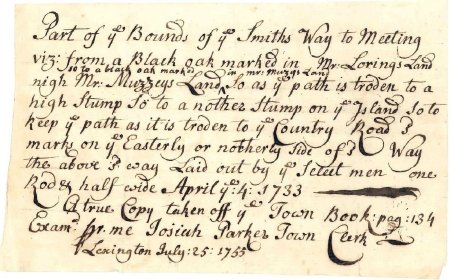 Part of yͤ Bounds of yͤ Smiths Way to Meeting
viz: from a Black oak marked in Mr. Lorings Land
so to a black oak marked in mr: Muzzys Land
nigh Mr. Muzzeys Land, So as yͤ path is troden to a
high Stump So to a nother Stump on yͤ Island So to
keep yͤ path as it is troden to yͤ Country Road
mark on yͤ Easterly or notherly Side of Way
the above way Laid out by yͤ Select men one
Rod & half wide April yͤ: 4: 1733
A true Copy taken off yͤ Town Book: pag: 134
Exam: pr: me Josiah Parker Town Clerk
Lexington July: 25: 1755